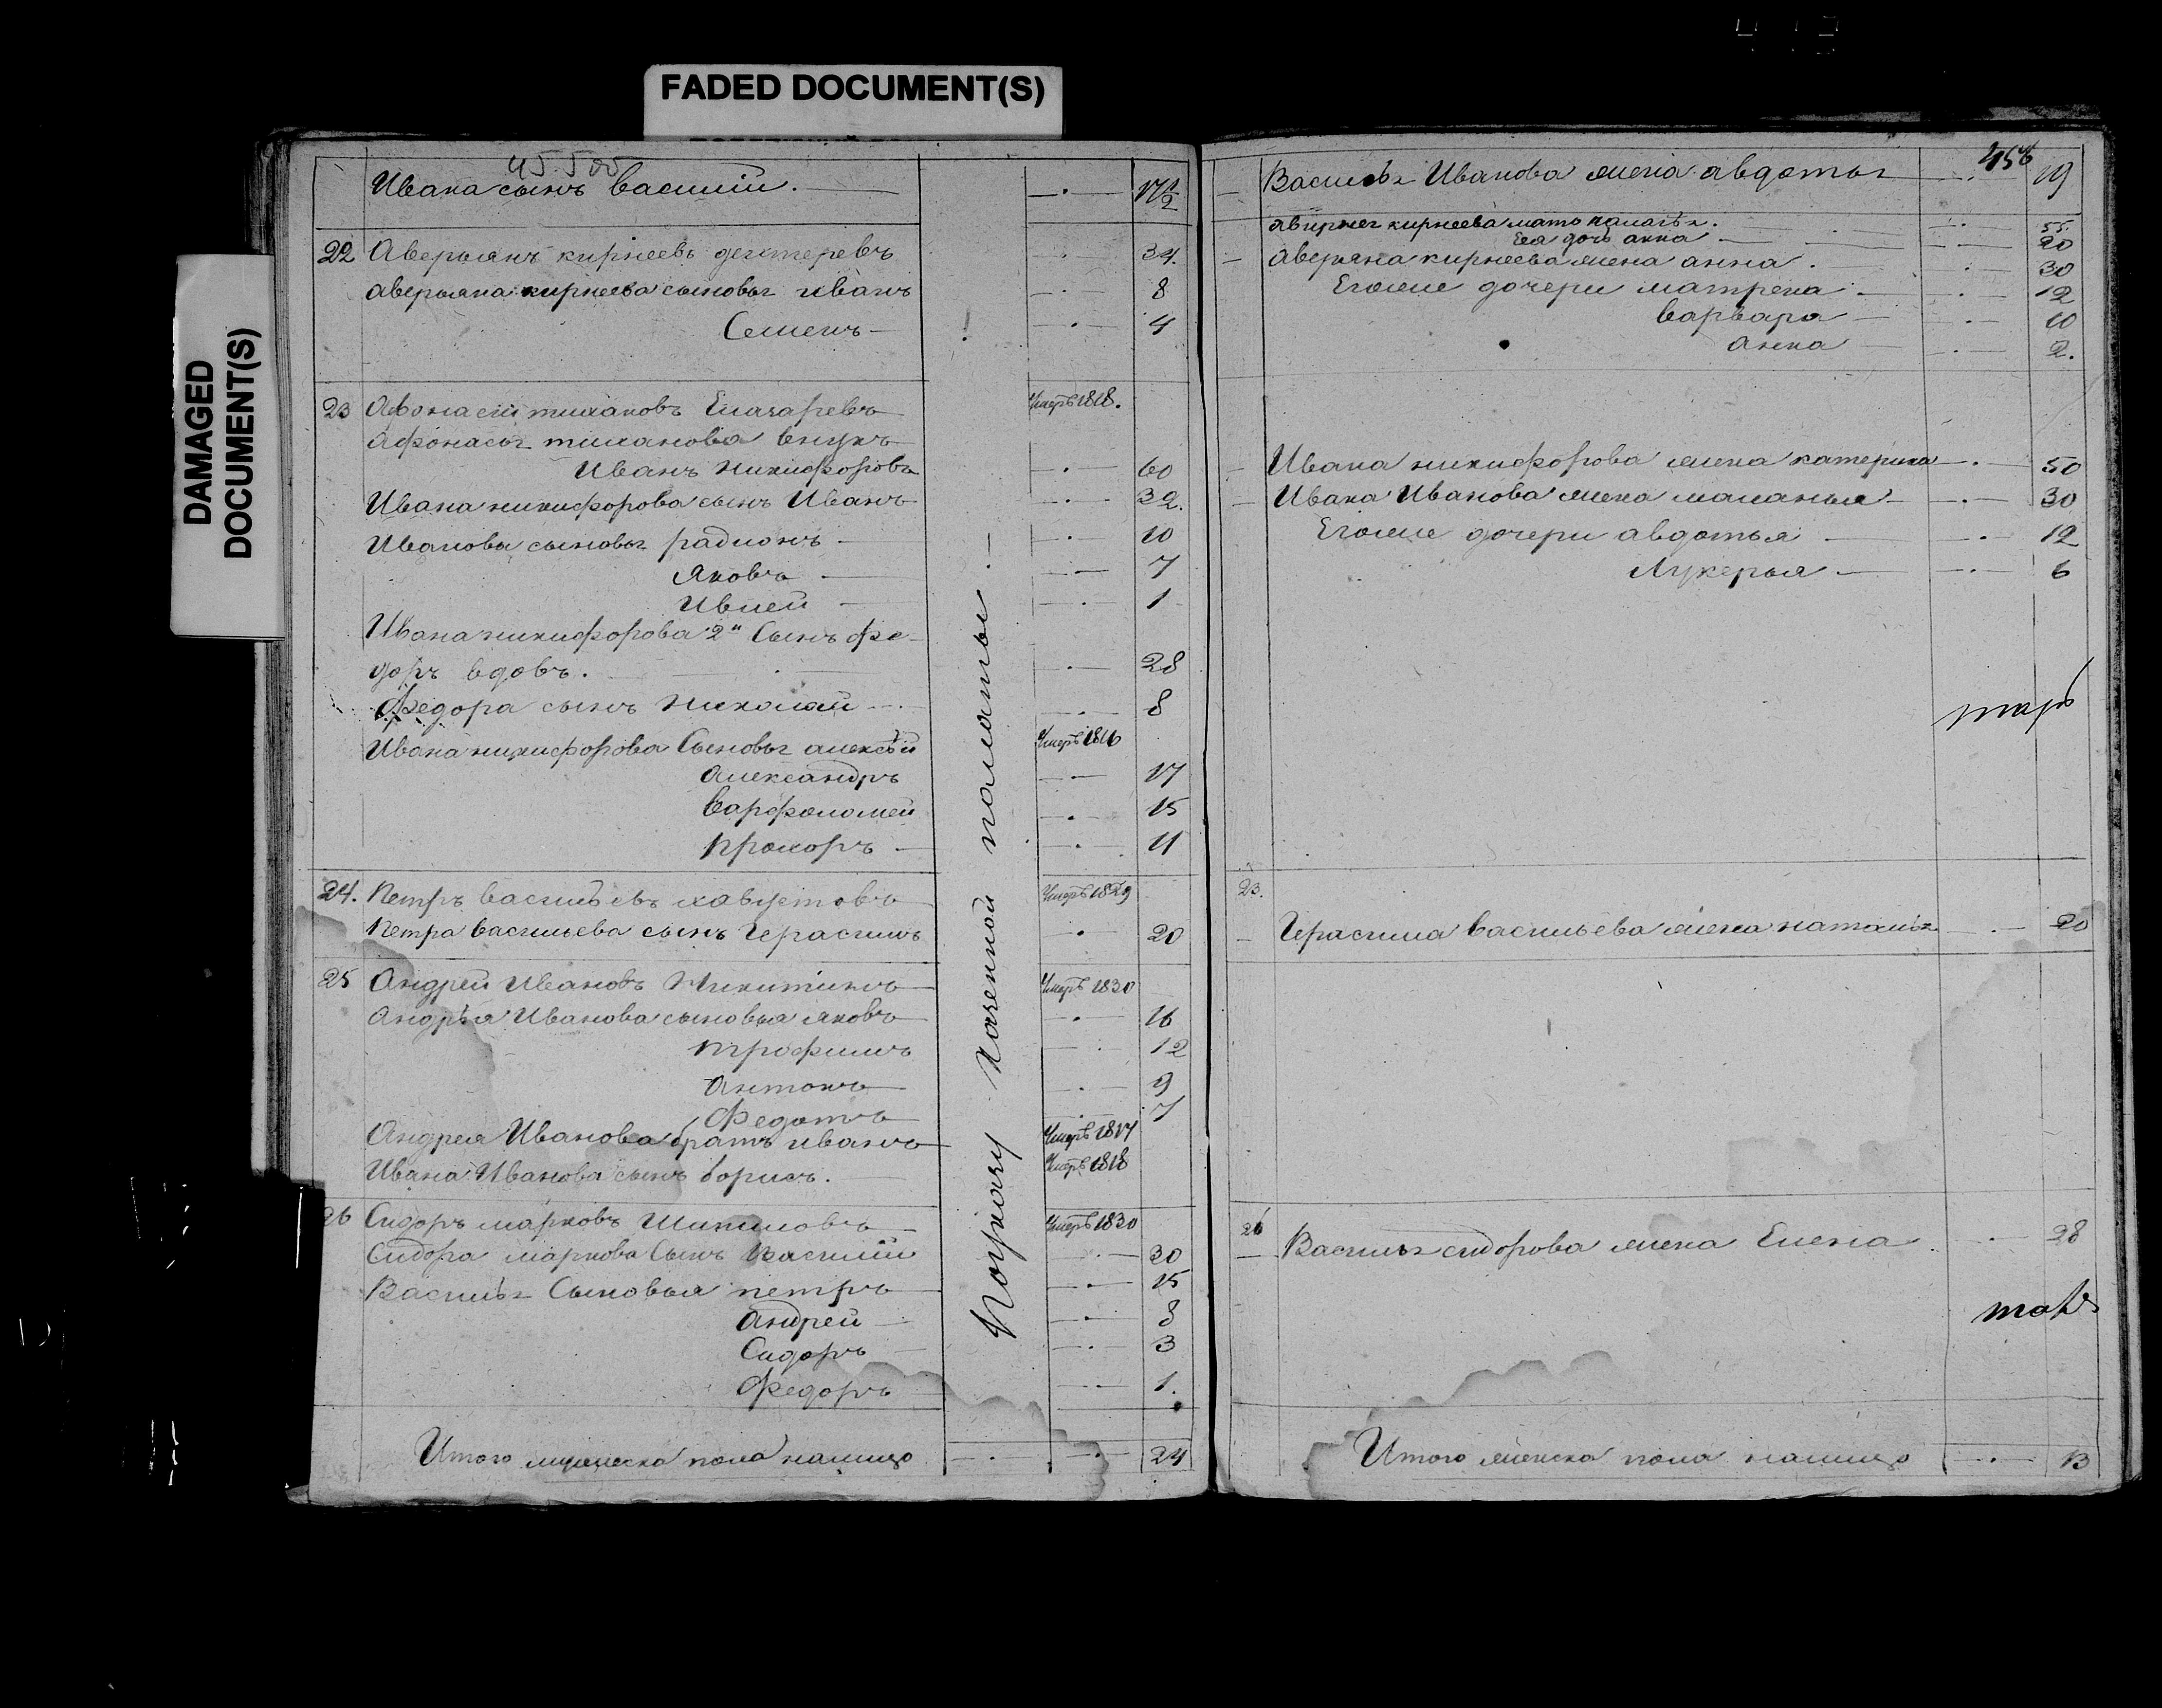 FADED DOCUMENT(S)
DAMAGED
DOCUMENT(S)
45.500
Ивана сынъ василiи. 17 1/2
22 Аверьянъ кирнеевъ дегтеревъ 34.
аверьяна кирнеева сыновья иванъ 8
Семенъ 4
23 Афонасiй тихановъ Елизаревъ Умеръ 1818.
Афонасья тиханова внукъ
Иванъ Никифоровъ 60
Ивана никифорова сынъ Иванъ 32.
Иванова сыновья радионъ 10
Яковъ 7
Ивлей 1
Ивана никифорова 2й Сынъ фе-
доръ вдовъ. 28
Федора сынъ Николай 8
Ивана никифорова Сыновья алексѣй Умеръ 1816
Александръ 17
Варфоломей 15
Прохоръ 11
24. Петръ васильевъ Умеръ 1829
Петра васильева сынъ Герасимъ 20
25 Андрей Ивановъ Никитинъ Умеръ 1830
Андрѣя Иванова сыновья яковъ 16
трофимъ 12
Антонъ 9
Федотъ 7
Андрея Иванова братъ иванъ Умеръ 1817
Ивана Иванова сынъ борисъ. Умеръ 1818
26 Сидоръ марковъ Шипиловъ Умеръ 1830
Сидора маркова Сынъ Василiи 30
Василья Сыновья петръ 15
Андрей 8
Сидоръ 3
Федоръ 1.
Итого мужеска пола налицо 24
По указу Казенной палаты.
456
Василья Иванова жена авдотья 19
кирнеева мать 55.
Ея дочь анна 20
аверьяна кирнеева жена анна. 30
Егоже дочери матрена 12
Варвара 10
анна 2.
Ивана никифорова жена катерина 50
Ивана Иванова жена маланья 30
Егоже дочери авдотья 12
Лукерья 6
23.
Герасима васильева жена наталья 20
26 Василья сидорова жена Елена 28
Итого женска пола налицо 13